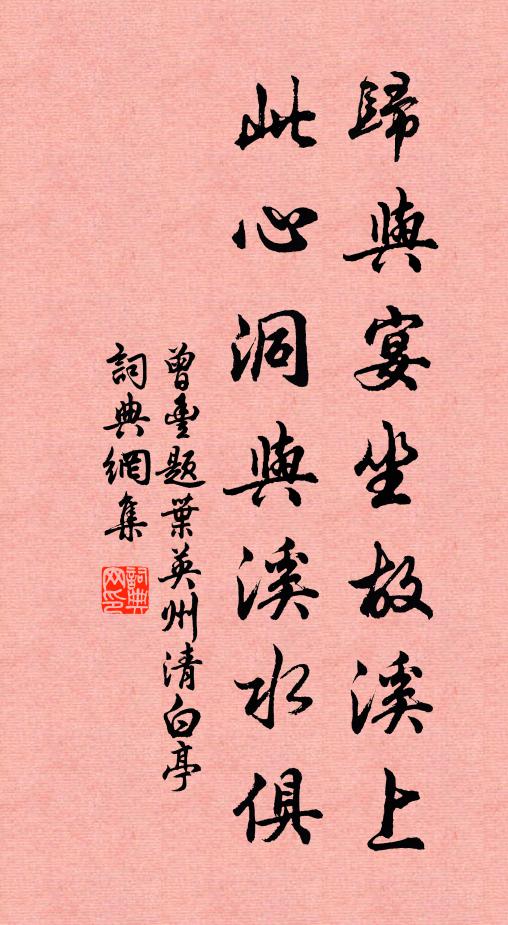 歸與宴坐故溪上
此心洞與溪水俱
曾豊題葉英州清白亭
詞典網集
詞典网印